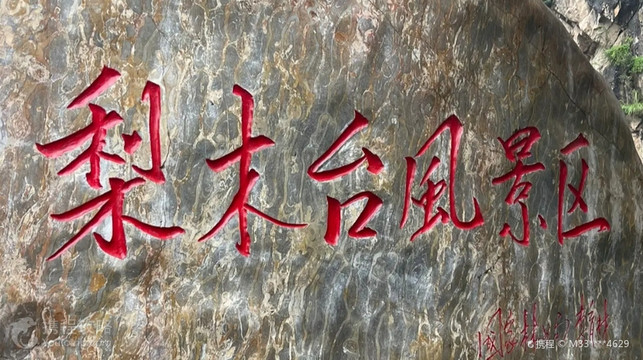 梨木台风景区
携程 © M33****4629